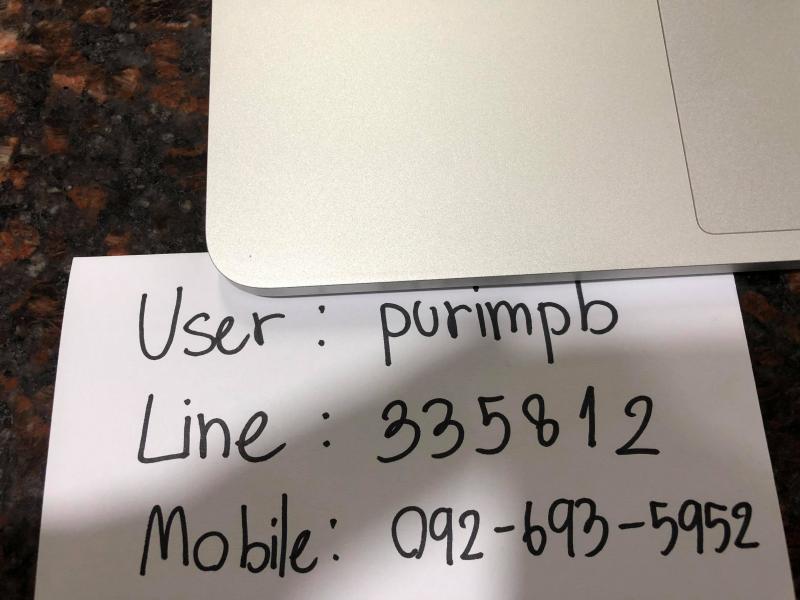 User : purimpb
Line : 335812
Mobile : 092-693-5952